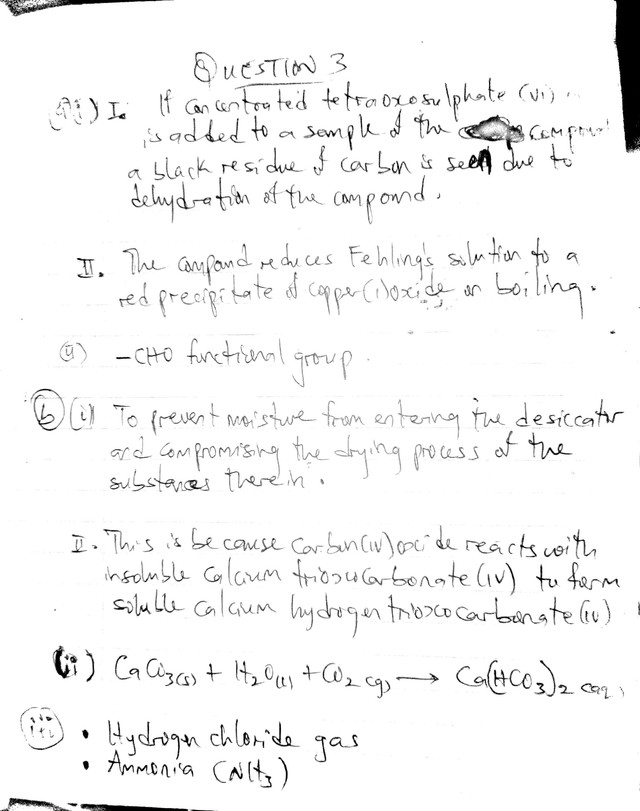 QUESTION 3
(ai) I. If concentrated tetraoxosulphate (vi)
is added to a sample of the compound
a black residue of carbon is seen due to
dehydration of the compound.
II. The compound reduces Fehling's solution to a
red precipitate of copper(i)oxide on boiling.
(ii) -CHO functional group.
(b) (i) To prevent moisture from entering the desiccator
and compromising the drying process of the
substances therein.
II. This is because Carbon(iv)oxide reacts with
insoluble Calcium trioxocarbonate (iv) to form
soluble calcium hydrogen trioxocarbonate (iv)
(ii) CaCO3(s) + H2O(l) + CO2(g) → Ca(HCO3)2(aq)
(iii) • Hydrogen chloride gas
• Ammonia (NH3)